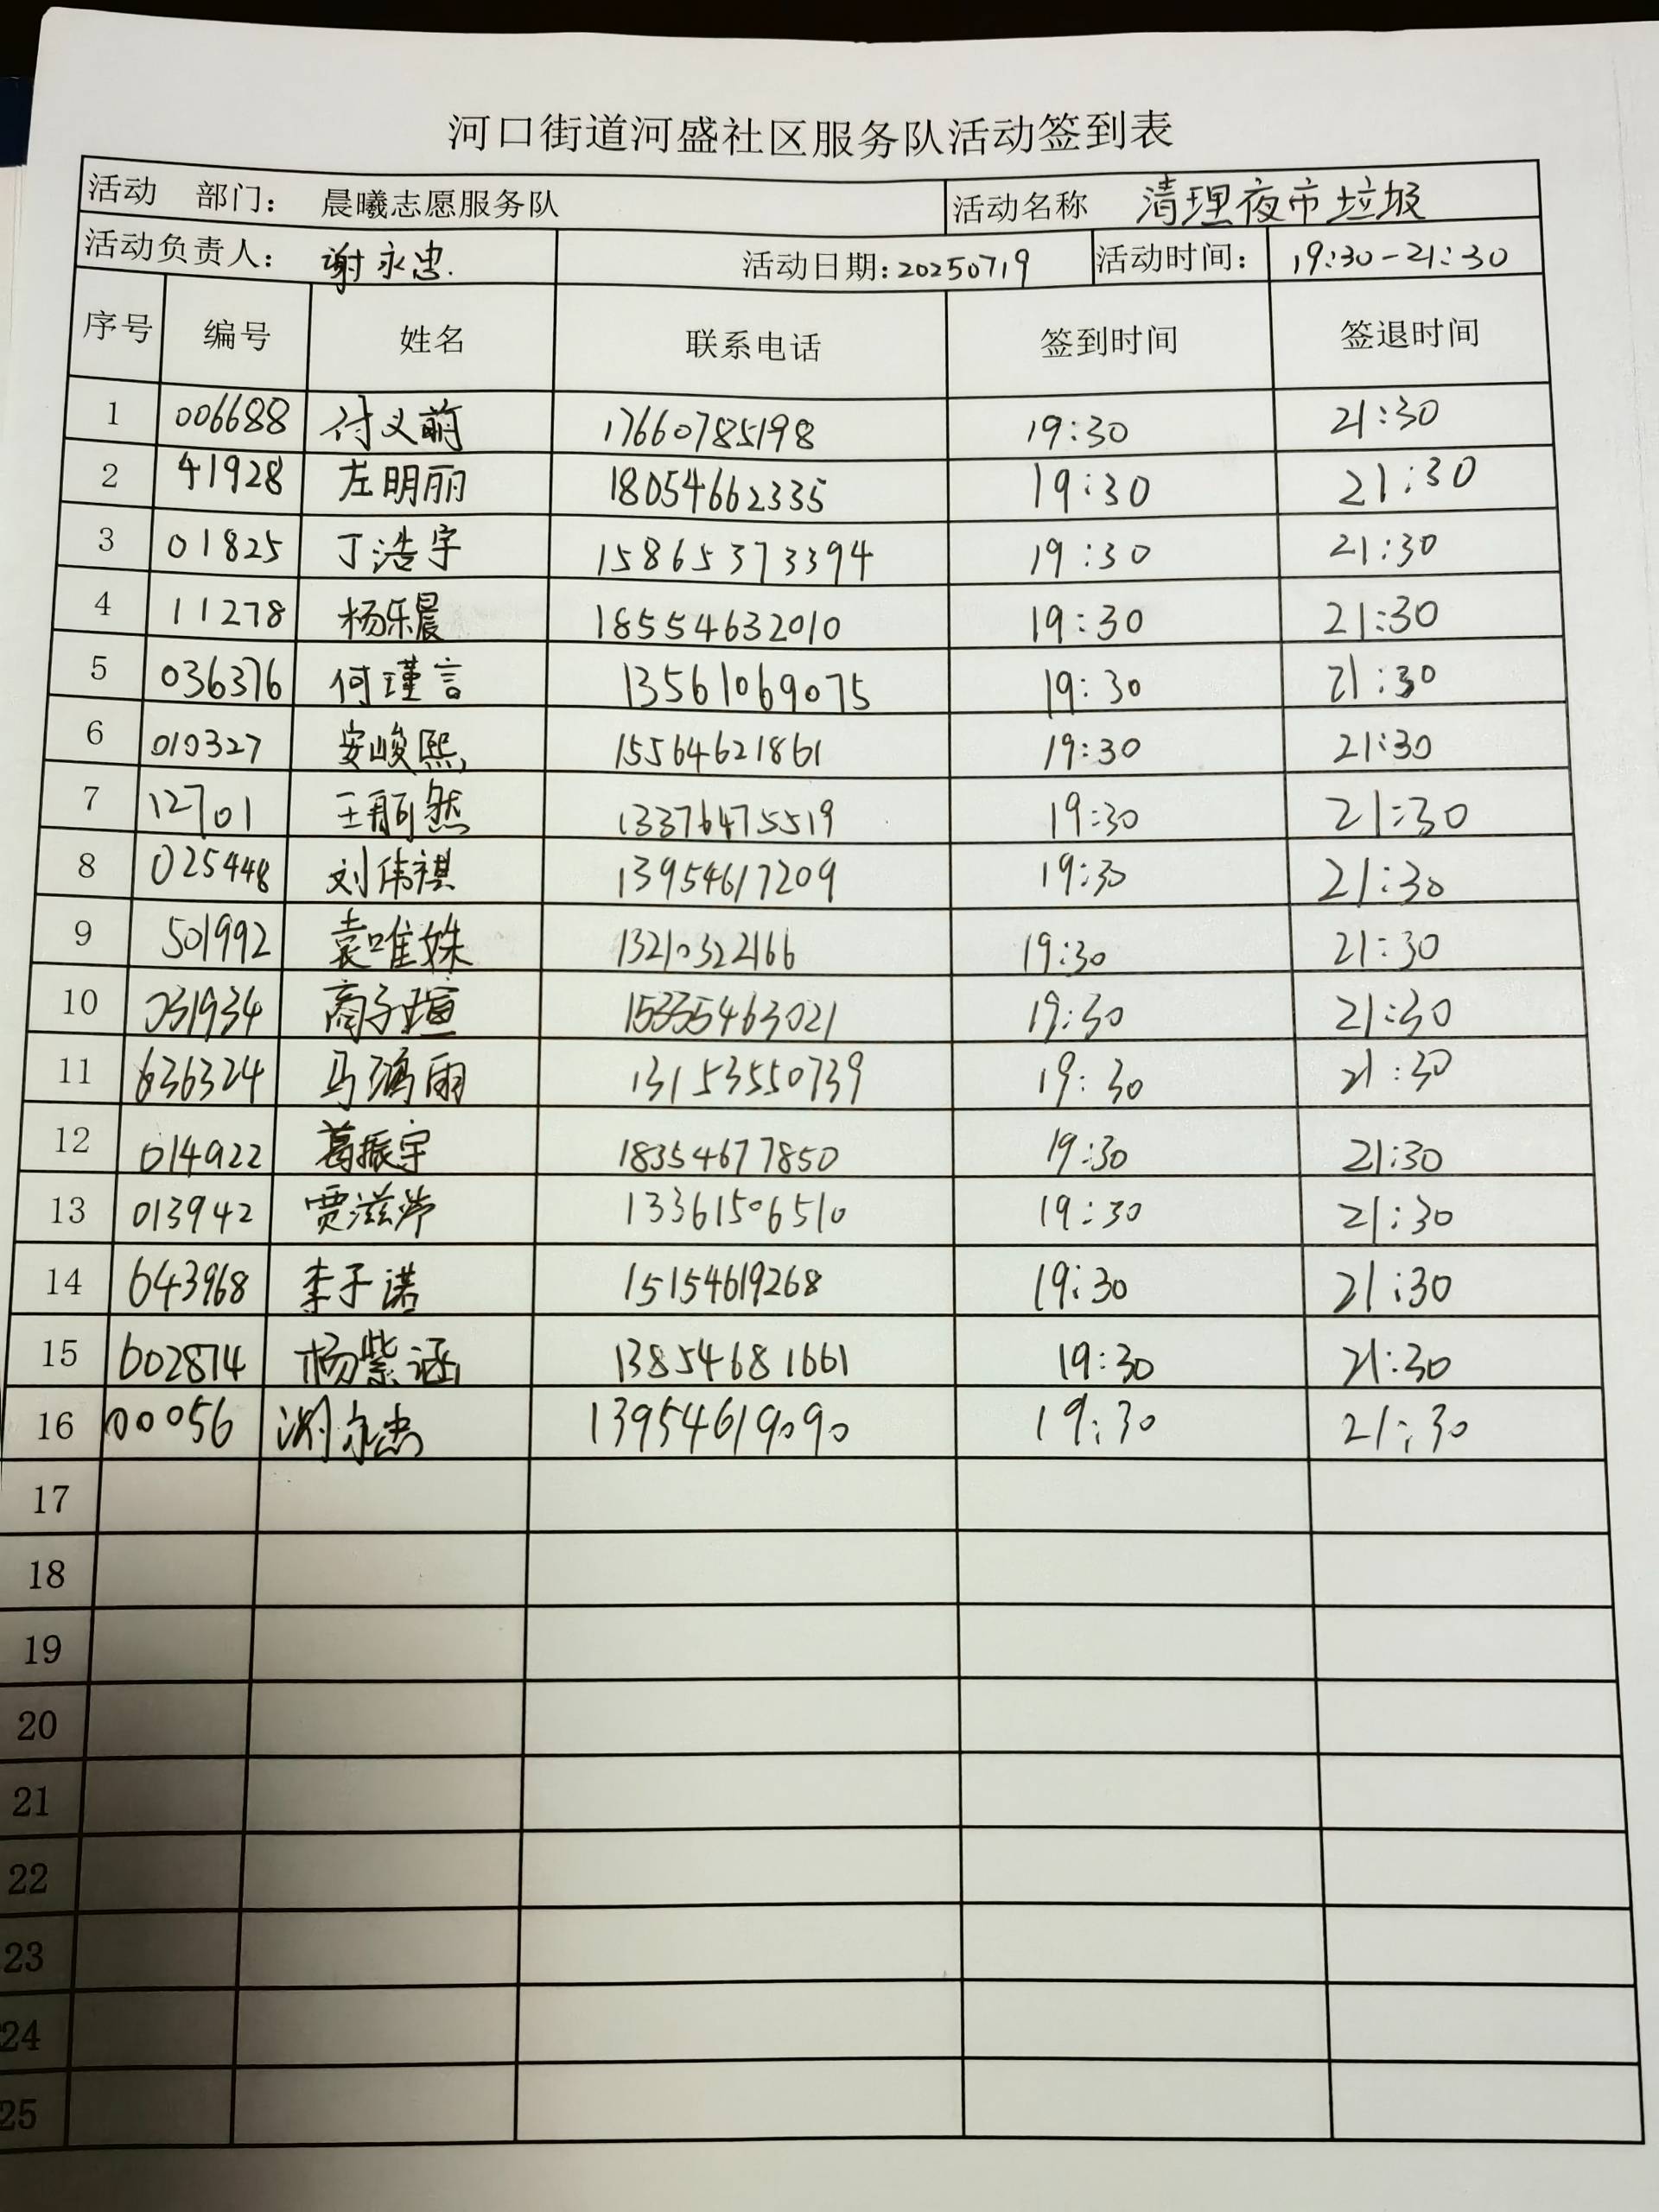 河口街道河盛社区服务队活动签到表
活动 部门： 晨曦志愿服务队 活动名称 清理夜市垃圾
活动负责人： 谢永忠. 活动日期：20250719 活动时间： 19:30-21:30
序号 编号 姓名 联系电话 签到时间 签退时间
1 006688 付义前 17660785198 19:30 21:30
2 41928 左明丽 18054662335 19:30 21:30
3 01825 丁浩宇 15865373394 19:30 21:30
4 11278 杨乐晨 18554632010 19:30 21:30
5 036376 何瑾言 13561069075 19:30 21:30
6 010327 安峻熙 15564621861 19:30 21:30
7 12701 王 然 13376475519 19:30 21:30
8 025448 刘伟祺 13954617209 19:30 21:30
9 501992 袁唯姝 13210322166 19:30 21:30
10 031934 商子瑄 15335463021 19:30 21:30
11 636324 马鸿雨 13153550739 19:30 21:30
12 014922 葛振宇 18354677850 19:30 21:30
13 013942 贾滋 13361506510 19:30 21:30
14 643968 李子诺 15154619268 19:30 21:30
15 602874 杨紫涵 13854681661 19:30 21:30
16 00056 谢永忠 13954619090 19:30 21:30
17
18
19
20
21
22
23
24
25